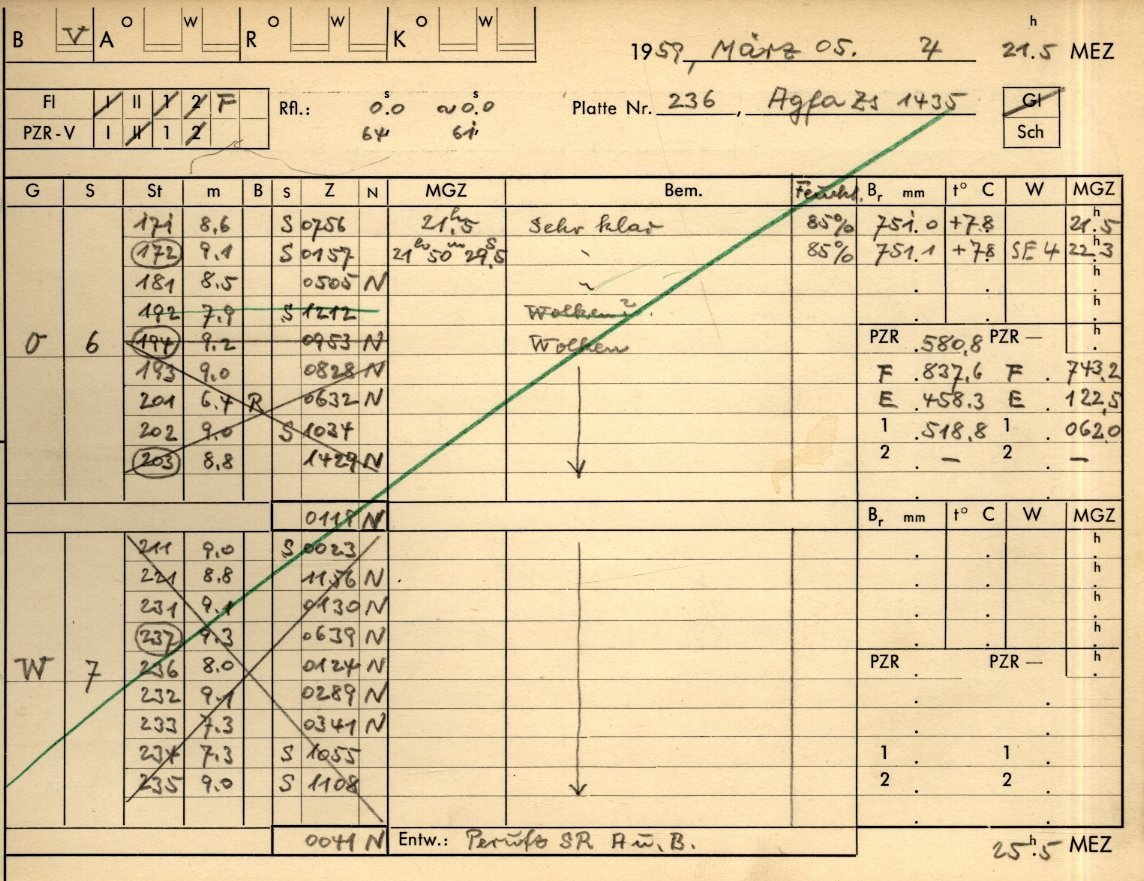 B V A O W R O W K O W
1959, März 05. 4 21.5 h MEZ
Fl I II 1 2 F Rfl.: 0.0 s ~0.0 s Platte Nr. 236, Agfa Zs 1435 Gl
PZR-V I II 1 2 64 61 Sch
G S St m B S Z N MGZ Bem. Feucht. Br mm t° C W MGZ
171 8.6 S 0756 21h.5 sehr klar 85% 751.0 +7.8 21h.5
172 9.1 S 0157 21h50m29s.5 85% 751.1 +7.8 SE 4 22h.3
181 8.5 0505 N h
192 7.9 S 1212 Wolken? h
O 6 194 9.2 0953 N Wolken PZR .580,8 PZR — h
193 9.0 0828 N F .837,6 F . 743,2
201 6.4 R 0632 N E .458.3 E . 122,5
202 9.0 S 1034 1 .518,8 1 062,0
203 8.8 1429 N 2 — 2 —
0119 N Br mm t° C W MGZ
211 9.0 S 0023 h
221 8.8 1156 N h
231 9.1 0130 N h
237 9.3 0639 N h
W 7 236 8.0 0124 N PZR PZR — h
232 9.1 0289 N
233 7.3 0341 N
234 7.3 S 1055 1 1
235 9.0 S 1108 2 2
0041 N Entw.: Perufo SR A u. B. 25h.5 MEZ